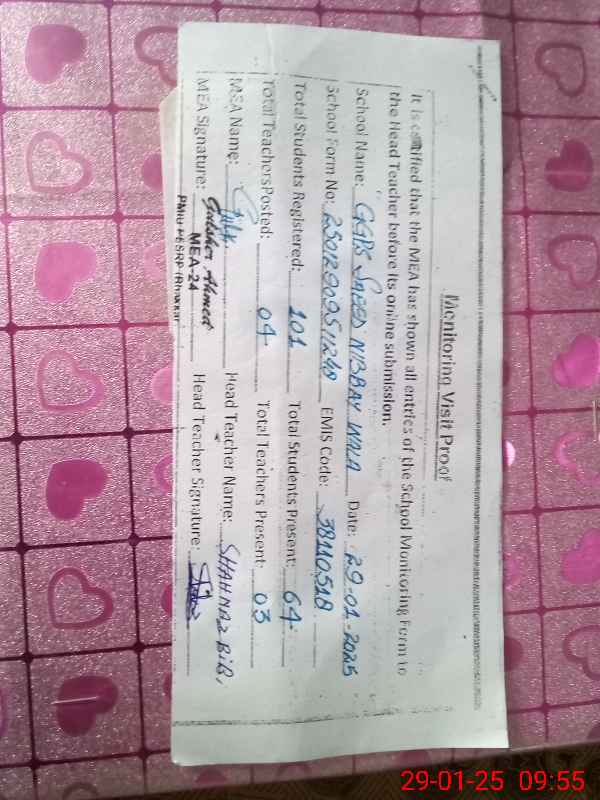 Monitoring Visit Proof
It is certified that the MEA has shown all entries of the School Monitoring Form to
the Head Teacher before its online submission.
School Name: GGPS SAEED NIBBAY WALA Date: 29-01-2025
School Form No: EMIS Code: 38110518
Total Students Registered: 101 Total Students Present: 64
Total TeachersPosted: 04 Total Teachers Present: 03
MEA Name: Head Teacher Name: SHAHNAZ BIBI
MEA Signature: Gulsher Ahmed Head Teacher Signature:
MEA-24
PMIU PESRP (Bhakkar
29-01-25 09:55